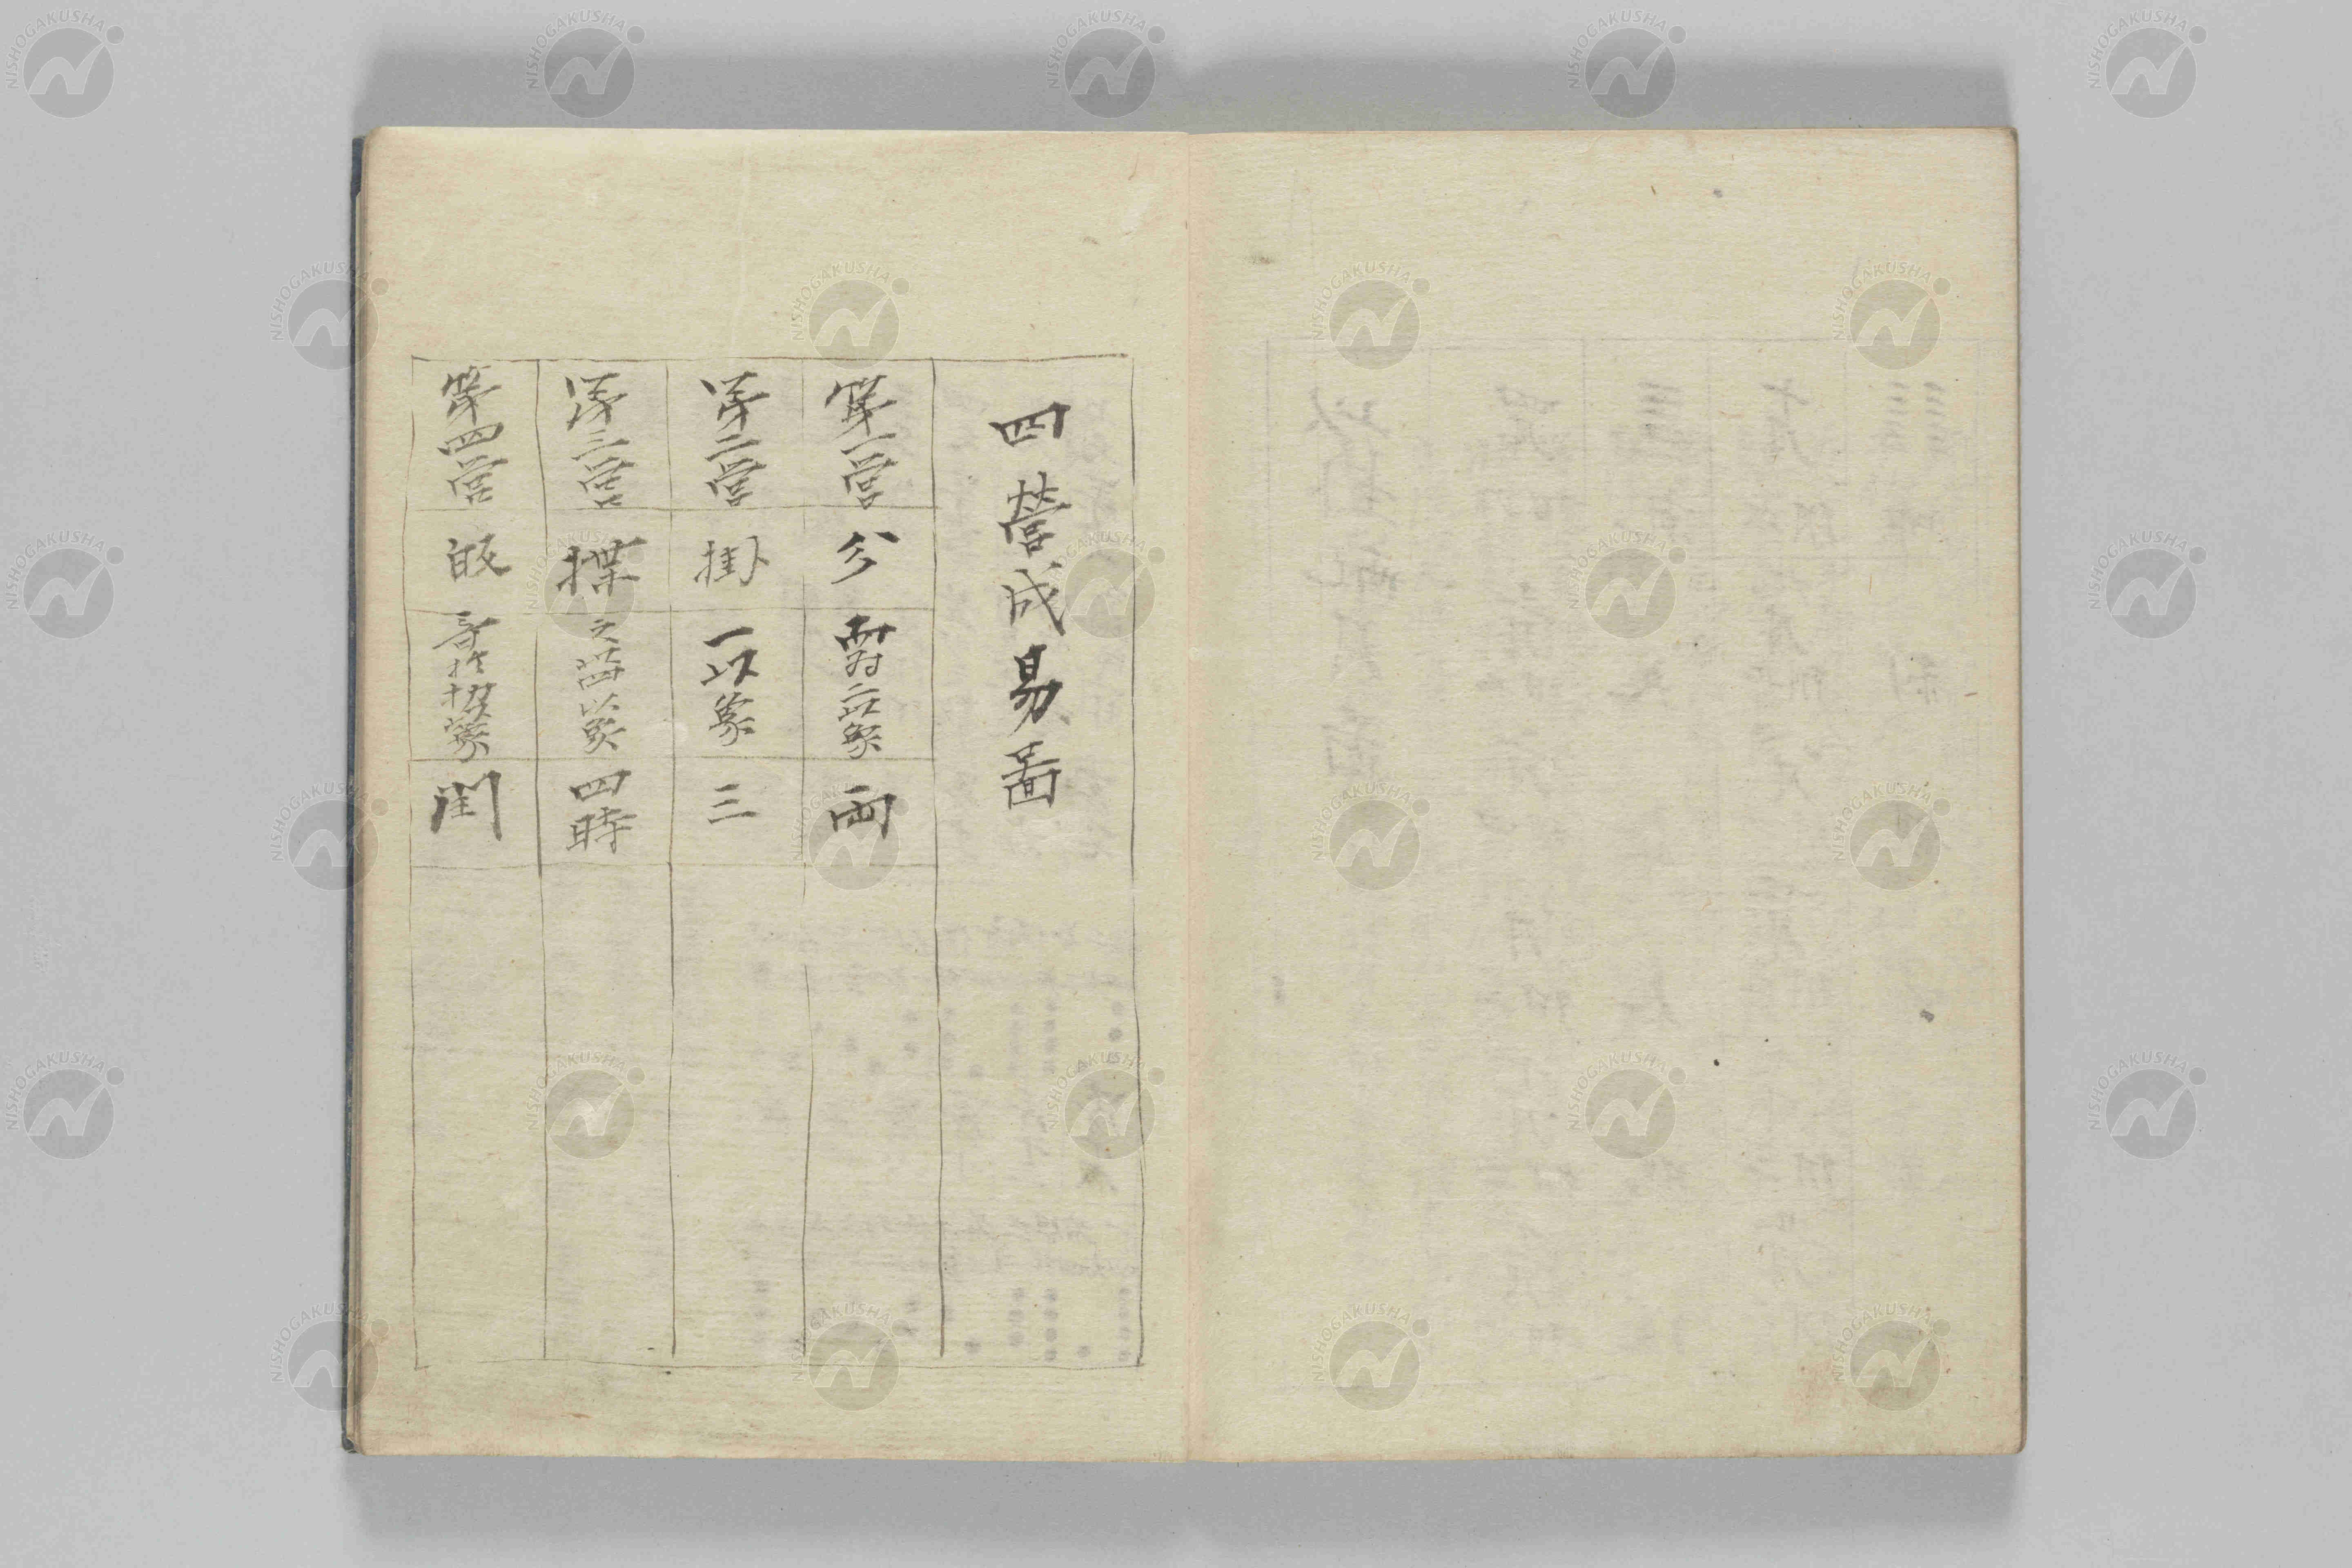 四營成易啚
第一營 分 而為二以象 兩
第二營 掛 一以象 三
第三營 揲 之以四以象 四時
第四營 皈 奇於扐以象 閏